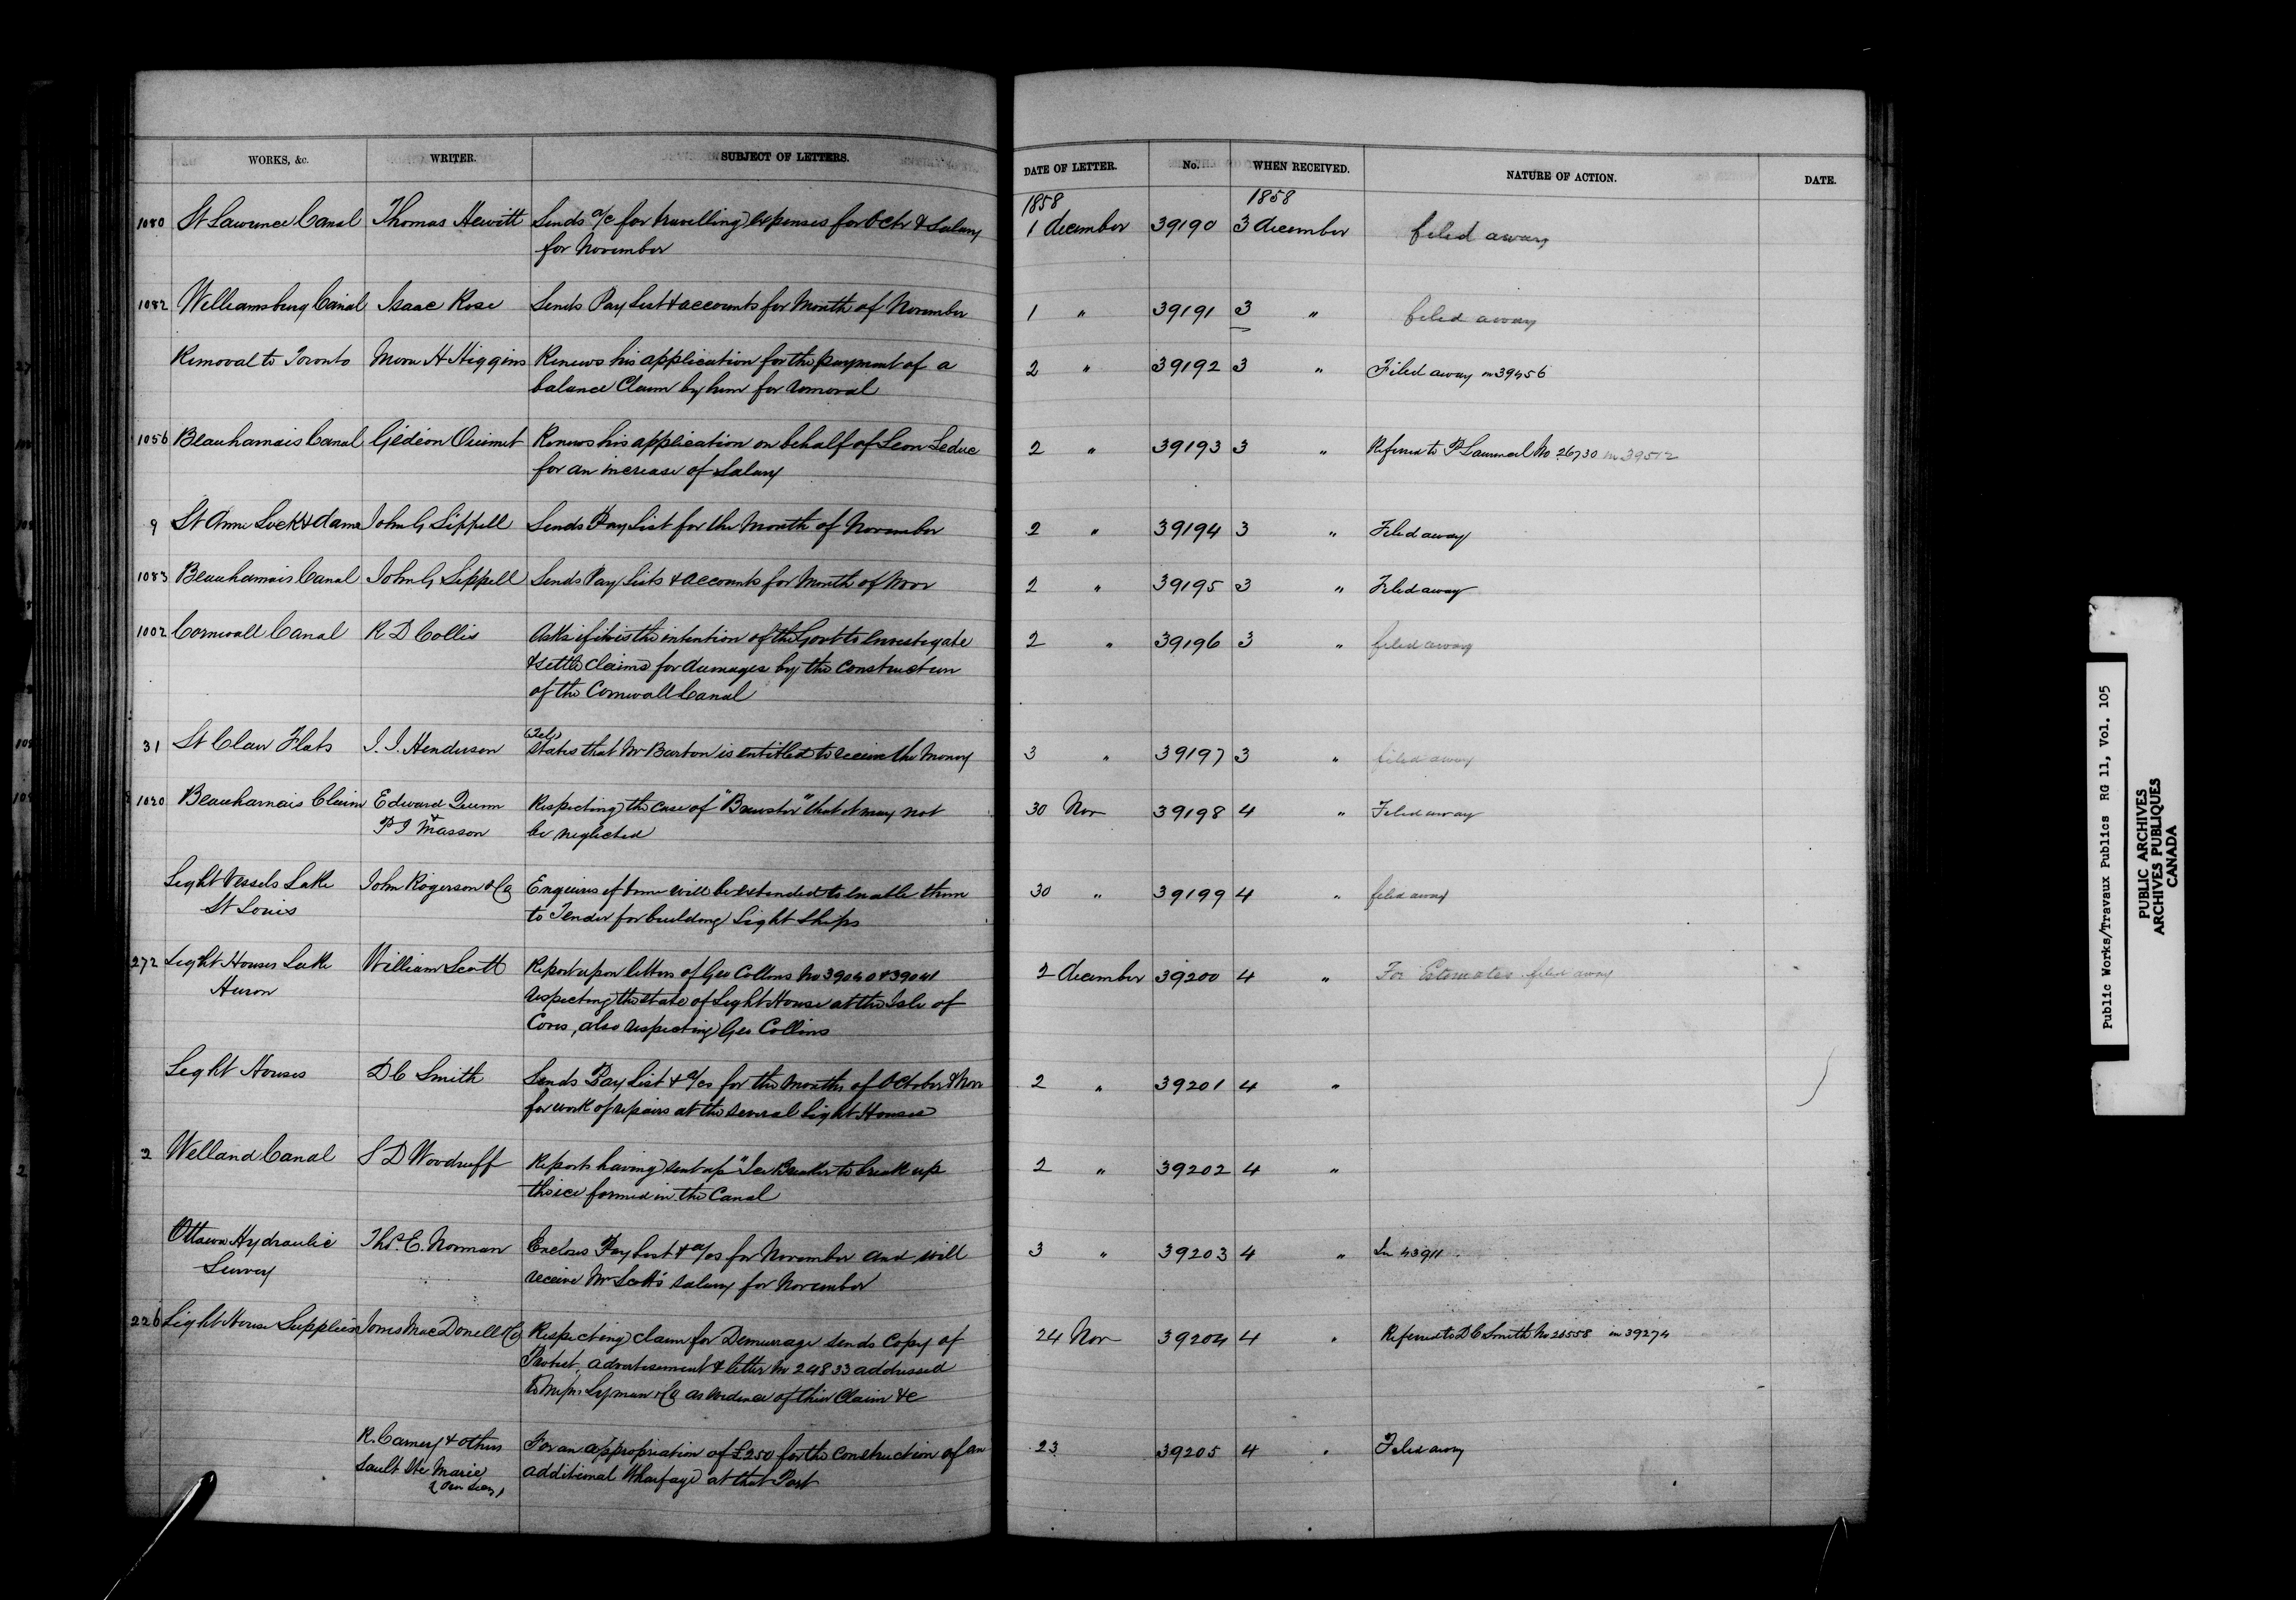 WORKS, &c. WRITER. SUBJECT OF LETTERS. DATE OF LETTER. No. WHEN RECEIVED. NATURE OF ACTION. DATE.
1858 1858
1080 St Lawrence Canal Thomas Hewitt Sends a/c for travelling expenses for Octr & Salary 1 december 39190 3 december filed away
for November
1082 Williamsburg Canal Isaac Rose Sends Pay List & accounts for Month of November 1 " 39191 3 " filed away
Removal to Toronto H Higgins Renews his application for the payment of a 2 " 39192 3 " Filed away in 39456
balance Claim by him for removal
1056 Beauharnais Canal Gédéon Ouimet Renews his application on behalf of Leon Leduc 2 " 39193 3 " Referred to No 26730 in 39512
for an increase of Salary
9 St Anne Lock & dams John G Sippell Sends Pay List for the Month of November 2 " 39194 3 " Filed away
1083 Beauharnais Canal John G Sippell Sends Pay Lists & accounts for Month of Novr 2 " 39195 3 " Filed away
1002 Cornwall Canal R D Collis Asks if it is the intention of the Govt to investigate 2 " 39196 3 " filed away
& settle claims for damages by the construction
of the Cornwall Canal
(Tel)
31 St Clair Flats J. J. Henderson States that Mr Burton is entitled to receive the Money 3 " 39197 3 " filed away
1020 Beauharnais Claim Edward Quinn Respecting the case of "Brewster" that it may not 30 Nov 39198 4 " Filed away
& P J Masson be neglected
Light Vessels Lake John Rogerson & Co Enquires if time will be extended to enable them 30 " 39199 4 " filed away
St Louis to Tender for building Light Ships
272 Light Houses Lake William Scott Report upon letters of Geo Collins No 39040 & 39041 2 december 39200 4 " For Estimates filed away
Huron respecting the state of Light House at the Isle of
Coves, also respecting Geo Collins
Light Houses D C Smith Sends Pay List & a/cs for the Months of October & Nov 2 " 39201 4 "
for work of repairs at the several Light Houses
2 Welland Canal S D Woodruff Reports having sent up "Ice Breaker to break up 2 " 39202 4 "
the ice formed in the Canal
Ottawa Hydraulic Thos. C. Norman Encloses Pay List & a/cs for November and will 3 " 39203 4 " In 43911
Survey receive Mr Scott's salary for November
226 Light House Supplies Jones MacDonell & Co Respecting claim for Demurrage sends Copy of 24 Nov 39204 4 " Referred to D C Smith No 26558 in 39274
Protest, advertisement & letter No 24833 addressed
to Messrs Lyman & Co as evidence of their Claim &c
R. Carney & others For an appropriation of £250 for the construction of an 23 39205 4 " Filed away
Sault Ste Marie additional Wharfage at that Port
Public Works/Travaux Publics RG 11, Vol. 105
PUBLIC ARCHIVES
ARCHIVES PUBLIQUES
CANADA